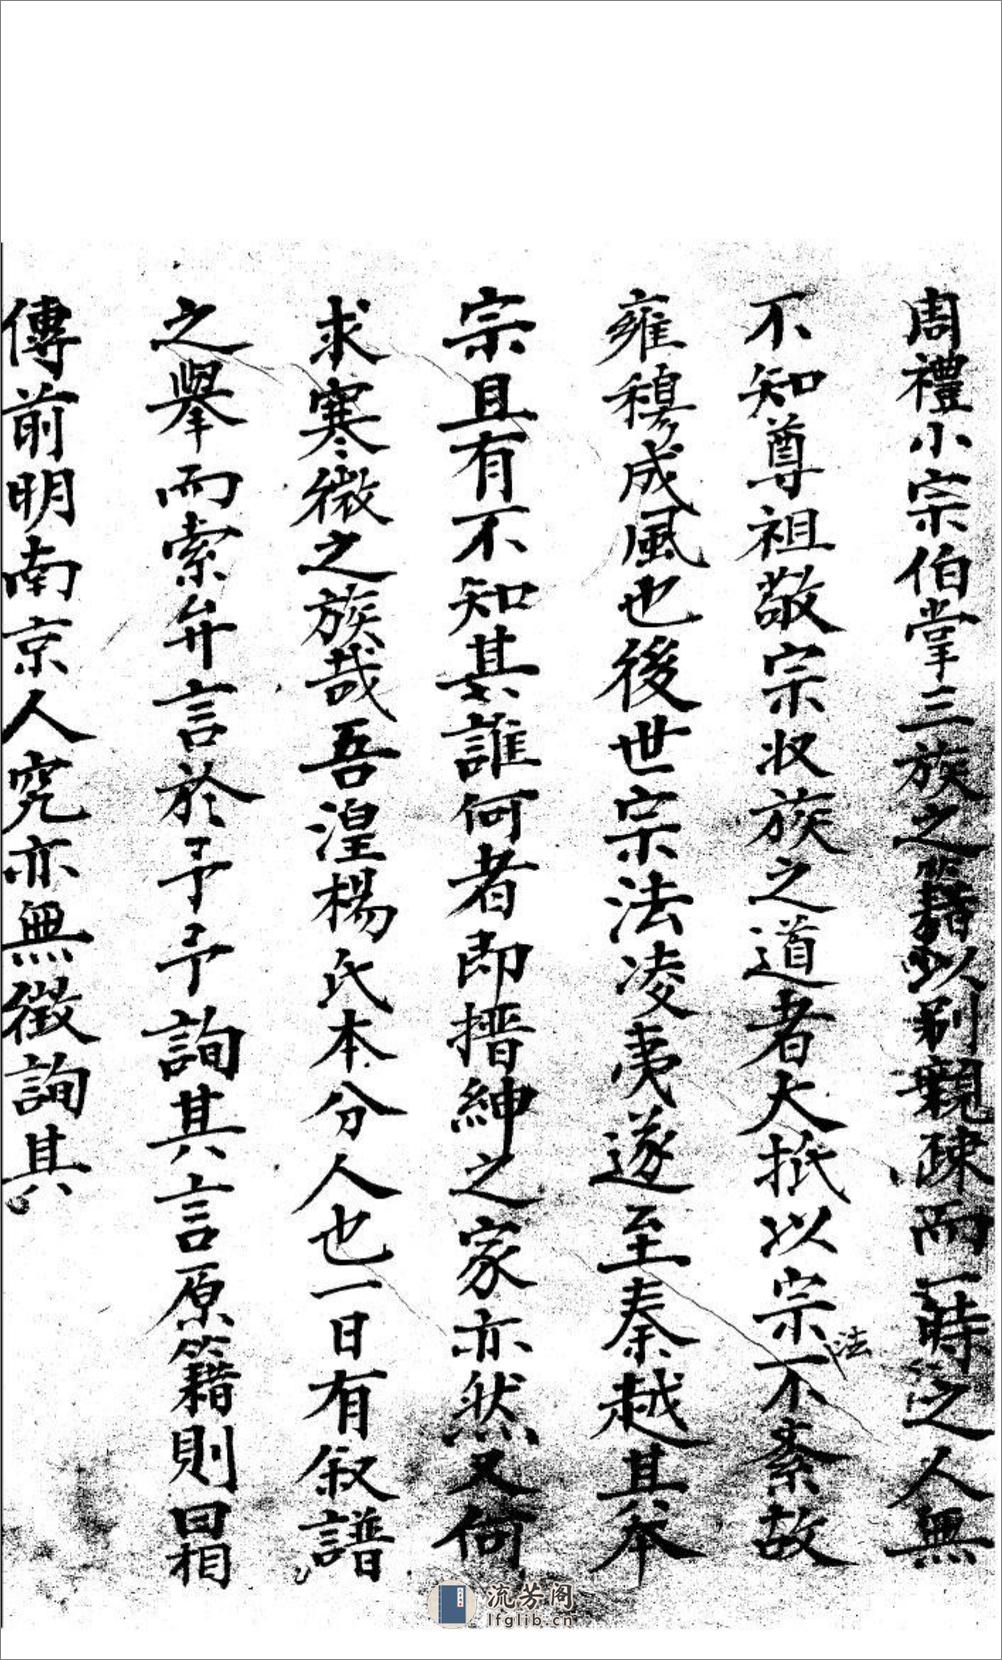 周禮小宗伯掌三族之籍以别親疎而一時之人無
不知尊祖敬宗収族之道者大抵以宗法不紊故
雍穆成風也後世宗法凌夷遂至秦越其本
宗且有不知其誰何者即搢紳之家亦然又何
求寒微之族哉吾湟楊氏本分人也一日有叙譜
之舉而索弁言於予予詢其言原籍則曰相
傳前明南京人究亦無徵詢其
流芳阁
lfglib.cn